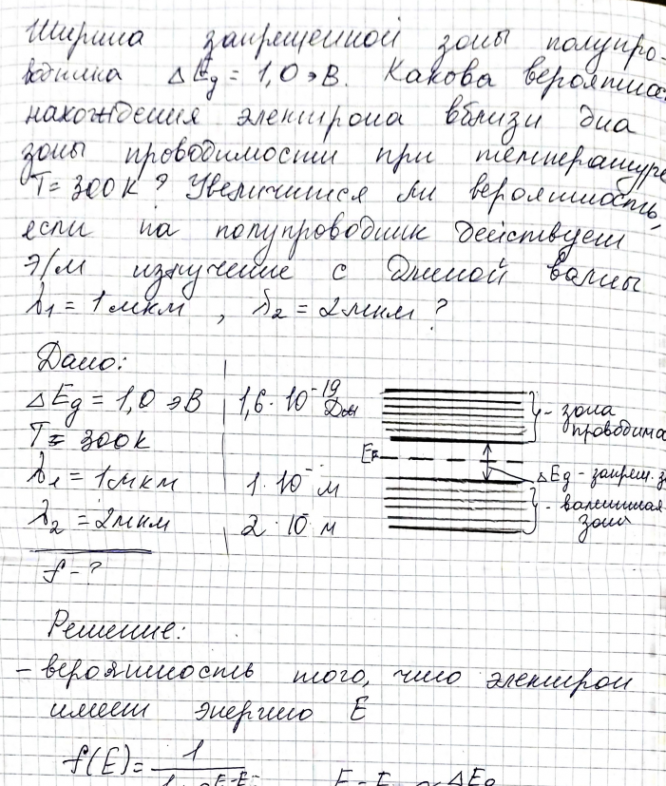 Ширина запрещенной зоны полупро-
водника ΔEg = 1,0 эВ. Какова вероятнос
нахождения электрона вблизи дна
зоны проводимости при температуре
T = 300К? Увеличится ли вероятность,
если на полупроводник действует
э/м излучение с длиной волны
λ1 = 1 мкм , λ2 = 2 мкм ?
Дано:
ΔEg = 1,0 эВ 1,6·10⁻¹⁹ Дж
T = 300К
λ1 = 1 мкм 1·10⁻ м
λ2 = 2 мкм 2·10⁻ м
f - ?
- зона
проводимо
EF
ΔEg - запрещ. з
- валентная
зона
Решение:
- вероятность того, что электрон
имеет энергию E
f(E) = 1
E-E ≈ ΔEg